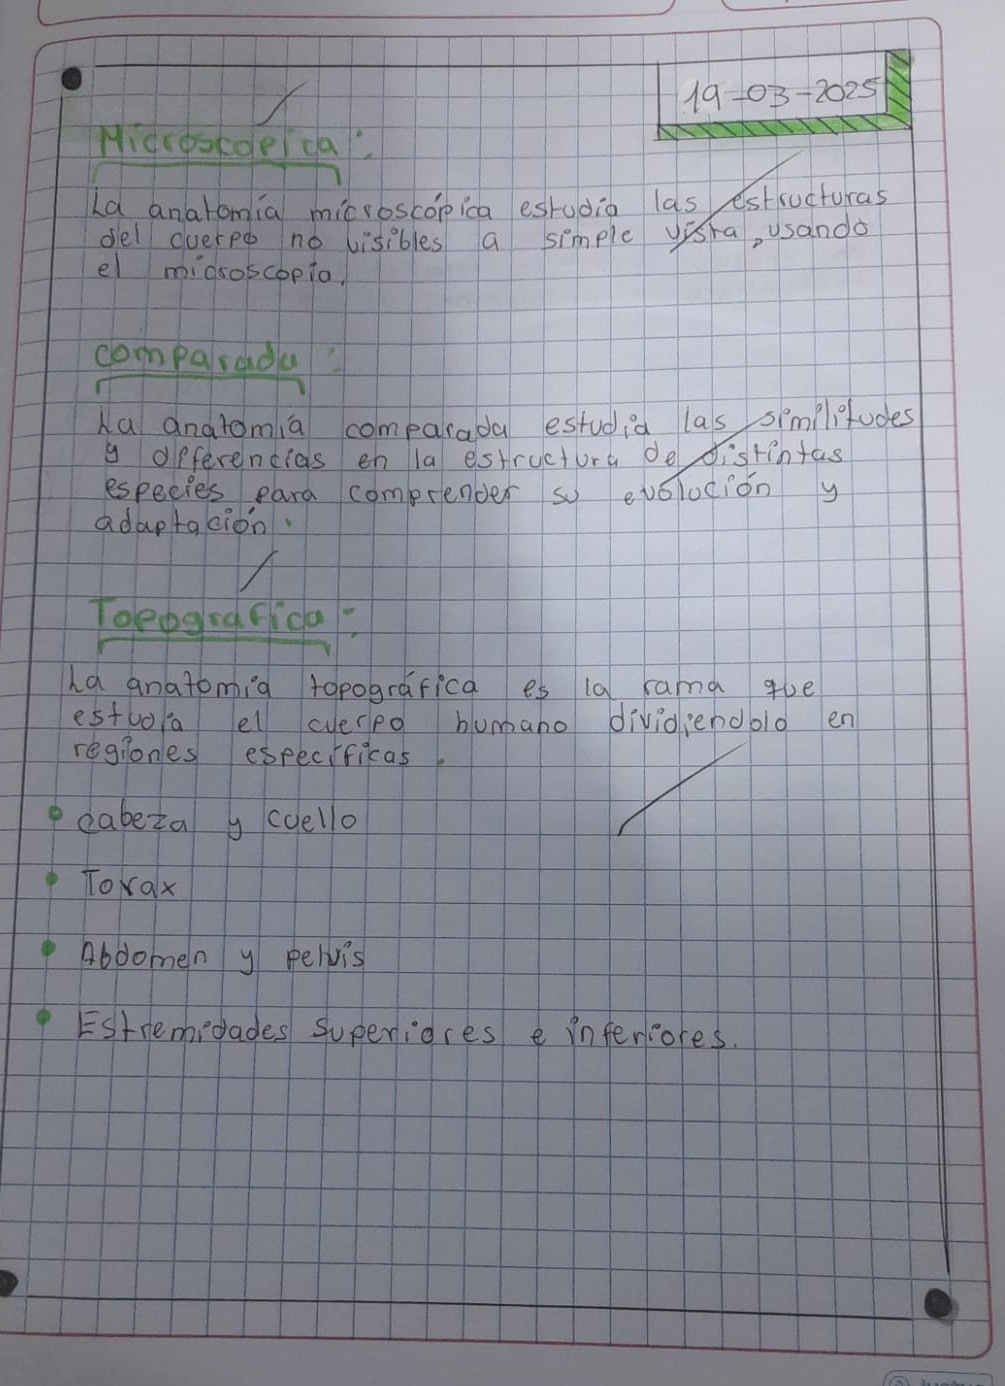 19-03-2025
Microscopica:
La anatomía microscópica estudia las estructuras
del cuerpo no visibles a simple vista, usando
el microscopia.
comparada:
La anatomía comparada estudia las similitudes
y diferencias en la estructura de distintas
especies para comprender su evolución y
adaptación.
Topografica:
La anatomía topográfica es la rama que
estudia el cuerpo humano dividiendolo en
regiones específicas.
• cabeza y cuello
• Torax
• Abdomen y pelvis
• Estremidades superiores e inferiores.